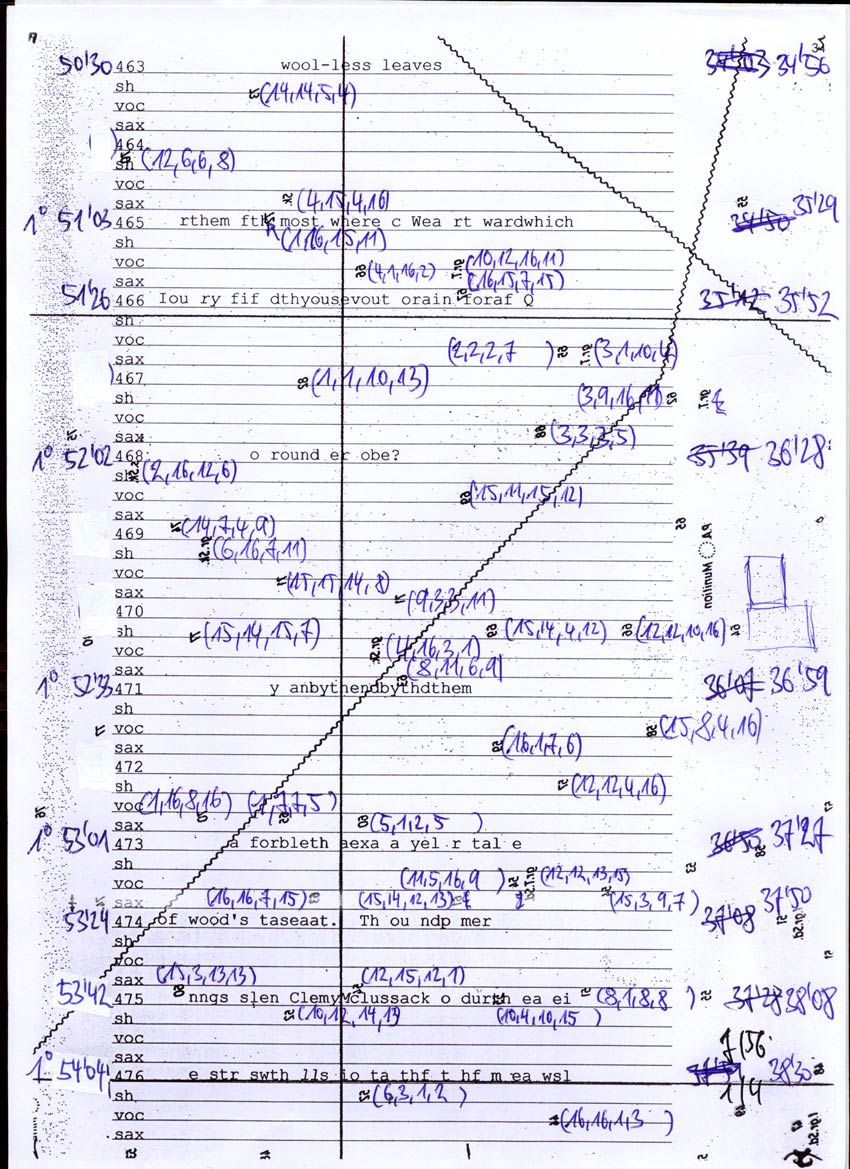 50'30 463 wool-less leaves 34'56
sh (14,14,5,4)
voc
sax
464
sh (12,6,6,8)
voc
sax (4,15,4,16)
1° 51'03 465 rthem ftk most where c Wea rt wardwhich 34'50 35'29
sh (1,16,15,11)
voc (4,1,16,2) (10,12,16,11)
sax (16,15,7,15)
51'26 466 Iou ry fif dthyousevout orain foraf Q 35'12 35'52
sh
voc (2,2,2,7 )
sax (3,1,10,4)
467 (1,1,10,13)
sh (3,9,16,11)
voc
sax (3,3,3,5)
1° 52'02 468 o round er obe? 35'39 36'28
sh (2,16,12,6)
voc (15,11,15,12)
sax
469 (14,7,4,9)
sh (6,16,7,11)
voc
sax (15,15,14,8)
470 (9,3,3,11)
sh (15,14,15,7) (15,14,4,12) (12,12,10,16)
voc (4,16,3,1)
sax (8,11,6,9)
1° 52'33 471 y anbythendbythdthem 36'07 36'59
sh
voc (15,8,4,16)
sax (16,1,7,6)
472
sh (12,12,4,16)
voc (1,16,8,16) (1,7,7,5)
sax (5,1,2,5 )
1° 53'01 473 a forbleth aexa a yel r tal e 36'50 37'27
sh
voc (11,5,16,9 ) (12,12,13,15)
sax (16,16,7,15) (15,14,12,13) (15,3,9,7) 37'50
53'24 474 of wood's taseaat. Th ou ndp mer 37'08
sh
voc
sax (15,3,13,13) (12,15,12,1)
53'42 475 nngs slen ClemyMclussack o durth ea ei (8,1,8,8 ) 37'28 38'08
sh (10,12,14,13 (10,4,10,15 )
voc
sax
1° 54'04 476 e str swth lls io ta thf t hf m ea wsl 38'30
sh (6,3,1,2 )
voc (16,16,1,3 )
sax